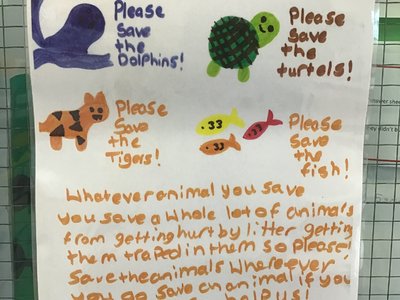 Please
save
the
Dolphins!
Please
save
the
turtels!
Please
save
the
Tigers!
33
33
33
Please
save
the
fish!
Whatever animal you save
you save a whole lot of animals
from getting hurt by litter getting
them traped in them so please!
Save the animals wherever
you go save an animal if you
help us!